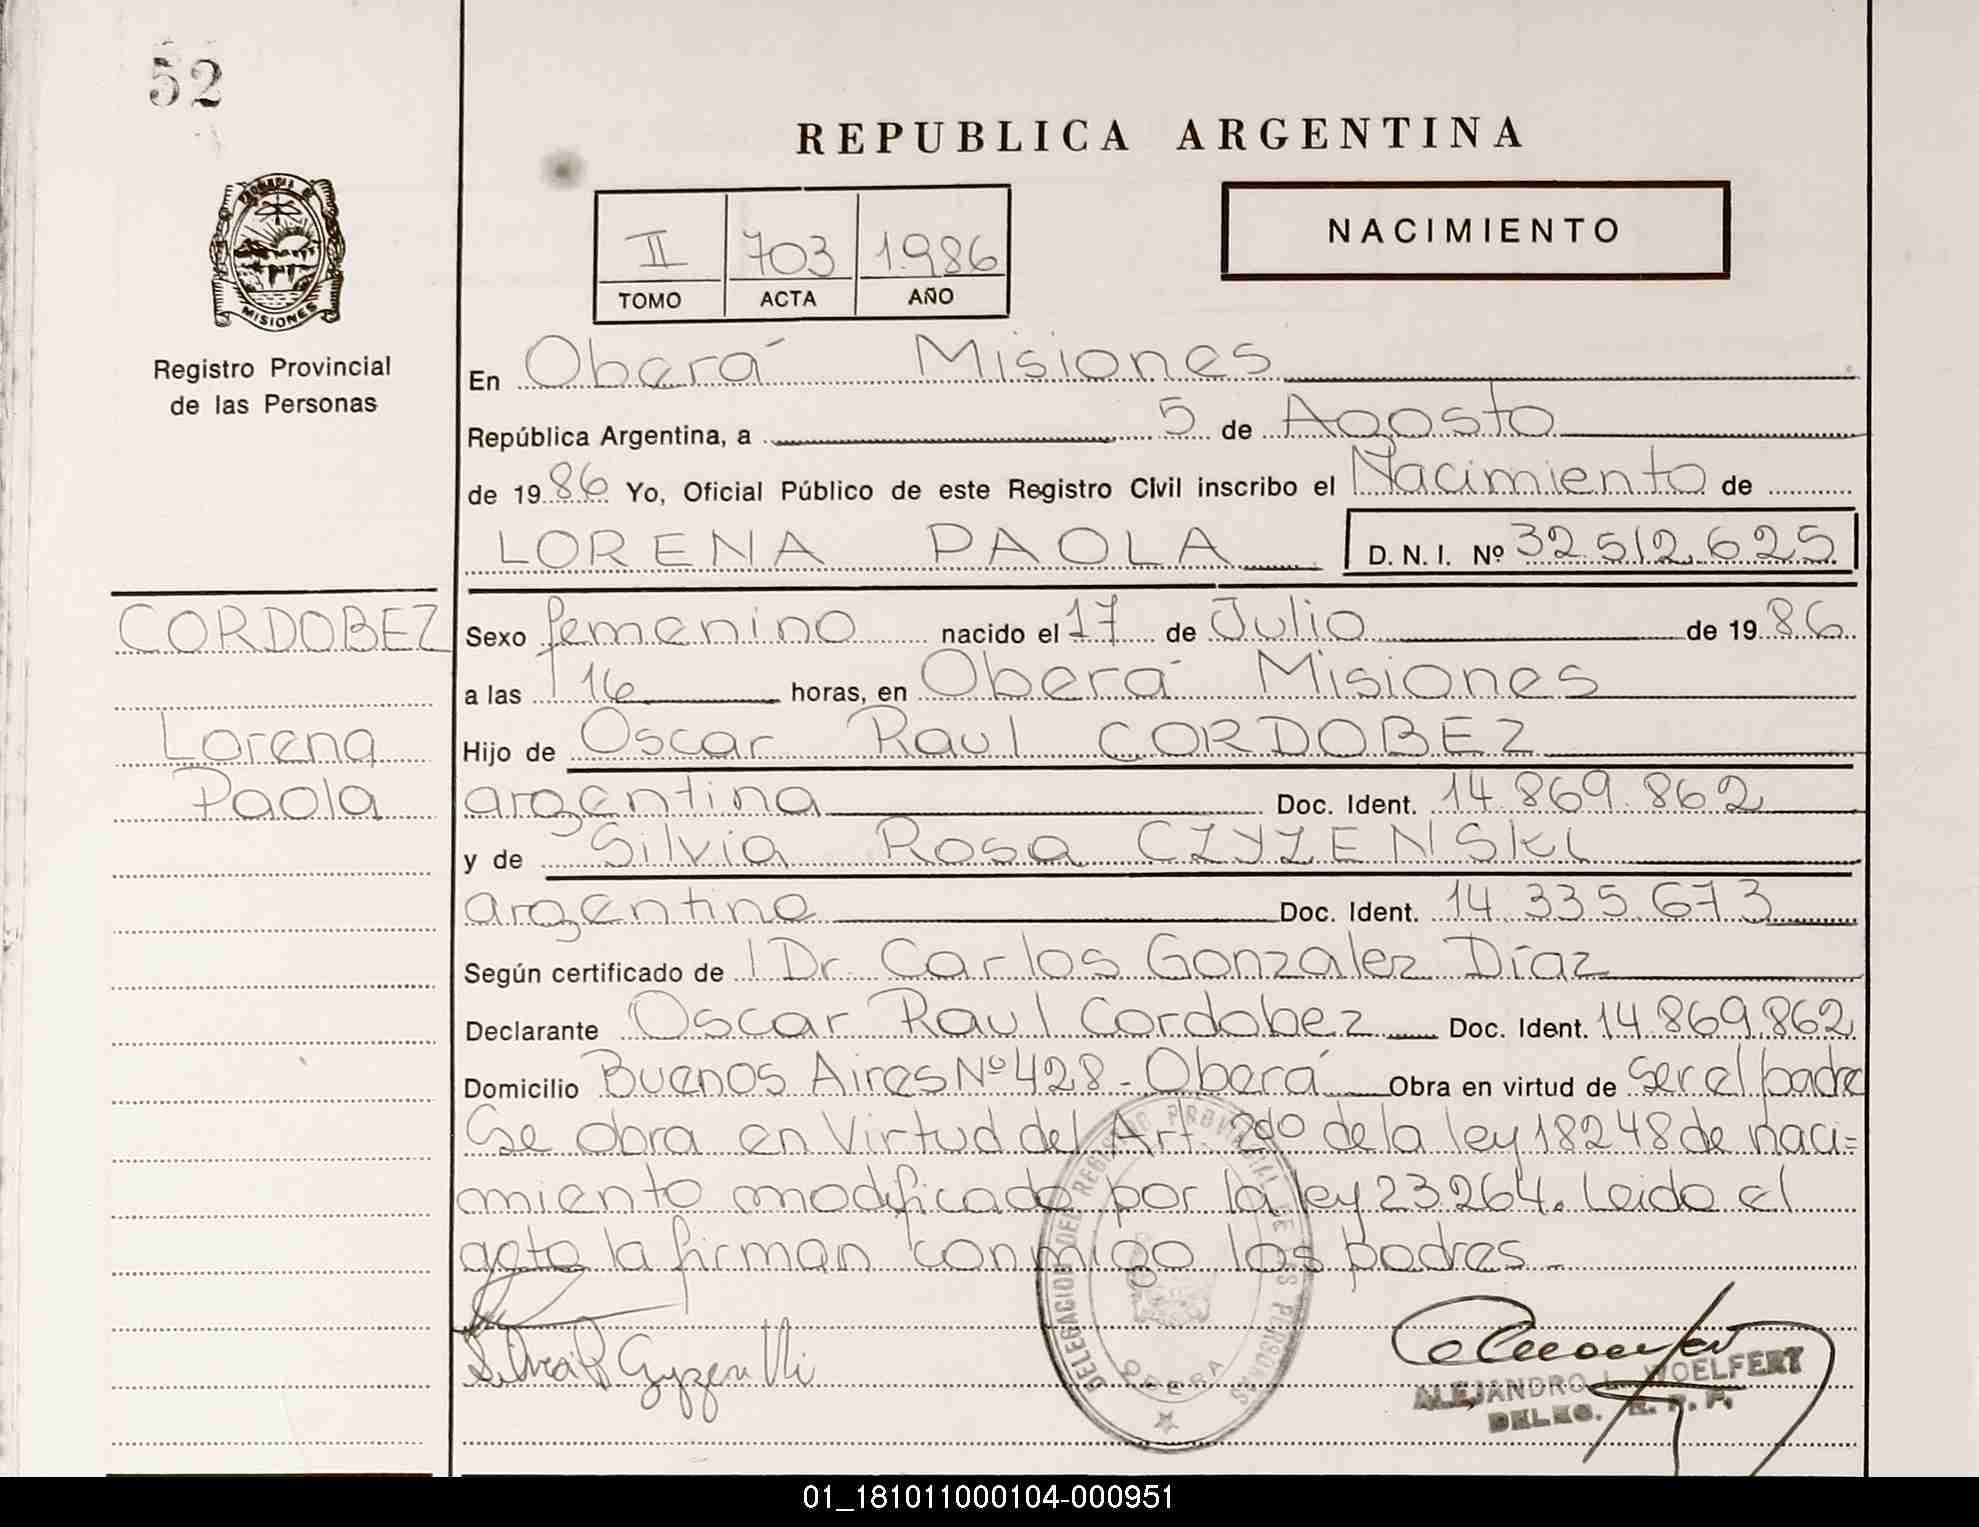 52
REPUBLICA ARGENTINA
NACIMIENTO
II 703 1.986
TOMO ACTA AÑO
PROVINCIA DE
MISIONES
Registro Provincial
de las Personas
En Oberá Misiones
República Argentina, a 5 de Agosto
de 19 86 Yo, Oficial Público de este Registro Civil inscribo el Nacimiento de
LORENA PAOLA D. N. I. Nº 32.512.625
CORDOBEZ
Lorena
Paola
Sexo femenino nacido el 17 de Julio de 19 86
a las 16 horas, en Oberá Misiones
Hijo de Oscar Raul CORDOBEZ
argentina Doc. Ident. 14.869.862
y de Silvia Rosa CZYZENSKI
argentina Doc. Ident. 14.335.673
Según certificado de Dr. Carlos Gonzalez Díaz
Declarante Oscar Raul Cordobez Doc. Ident. 14.869.862
Domicilio Buenos Aires Nº 428 - Oberá Obra en virtud de ser el padre
Se obra en Virtud del Art 2do de la ley 18248 de naci=
miento modificado por la ley 23264. Leido el
acta la firman conmigo los padres -
DELEGACION DEL REGISTRO PROVINCIAL DE LAS PERSONAS
OBERA
ALEJANDRO L. WOELFERT
DELEG. R. P. P.
01_181011000104-000951